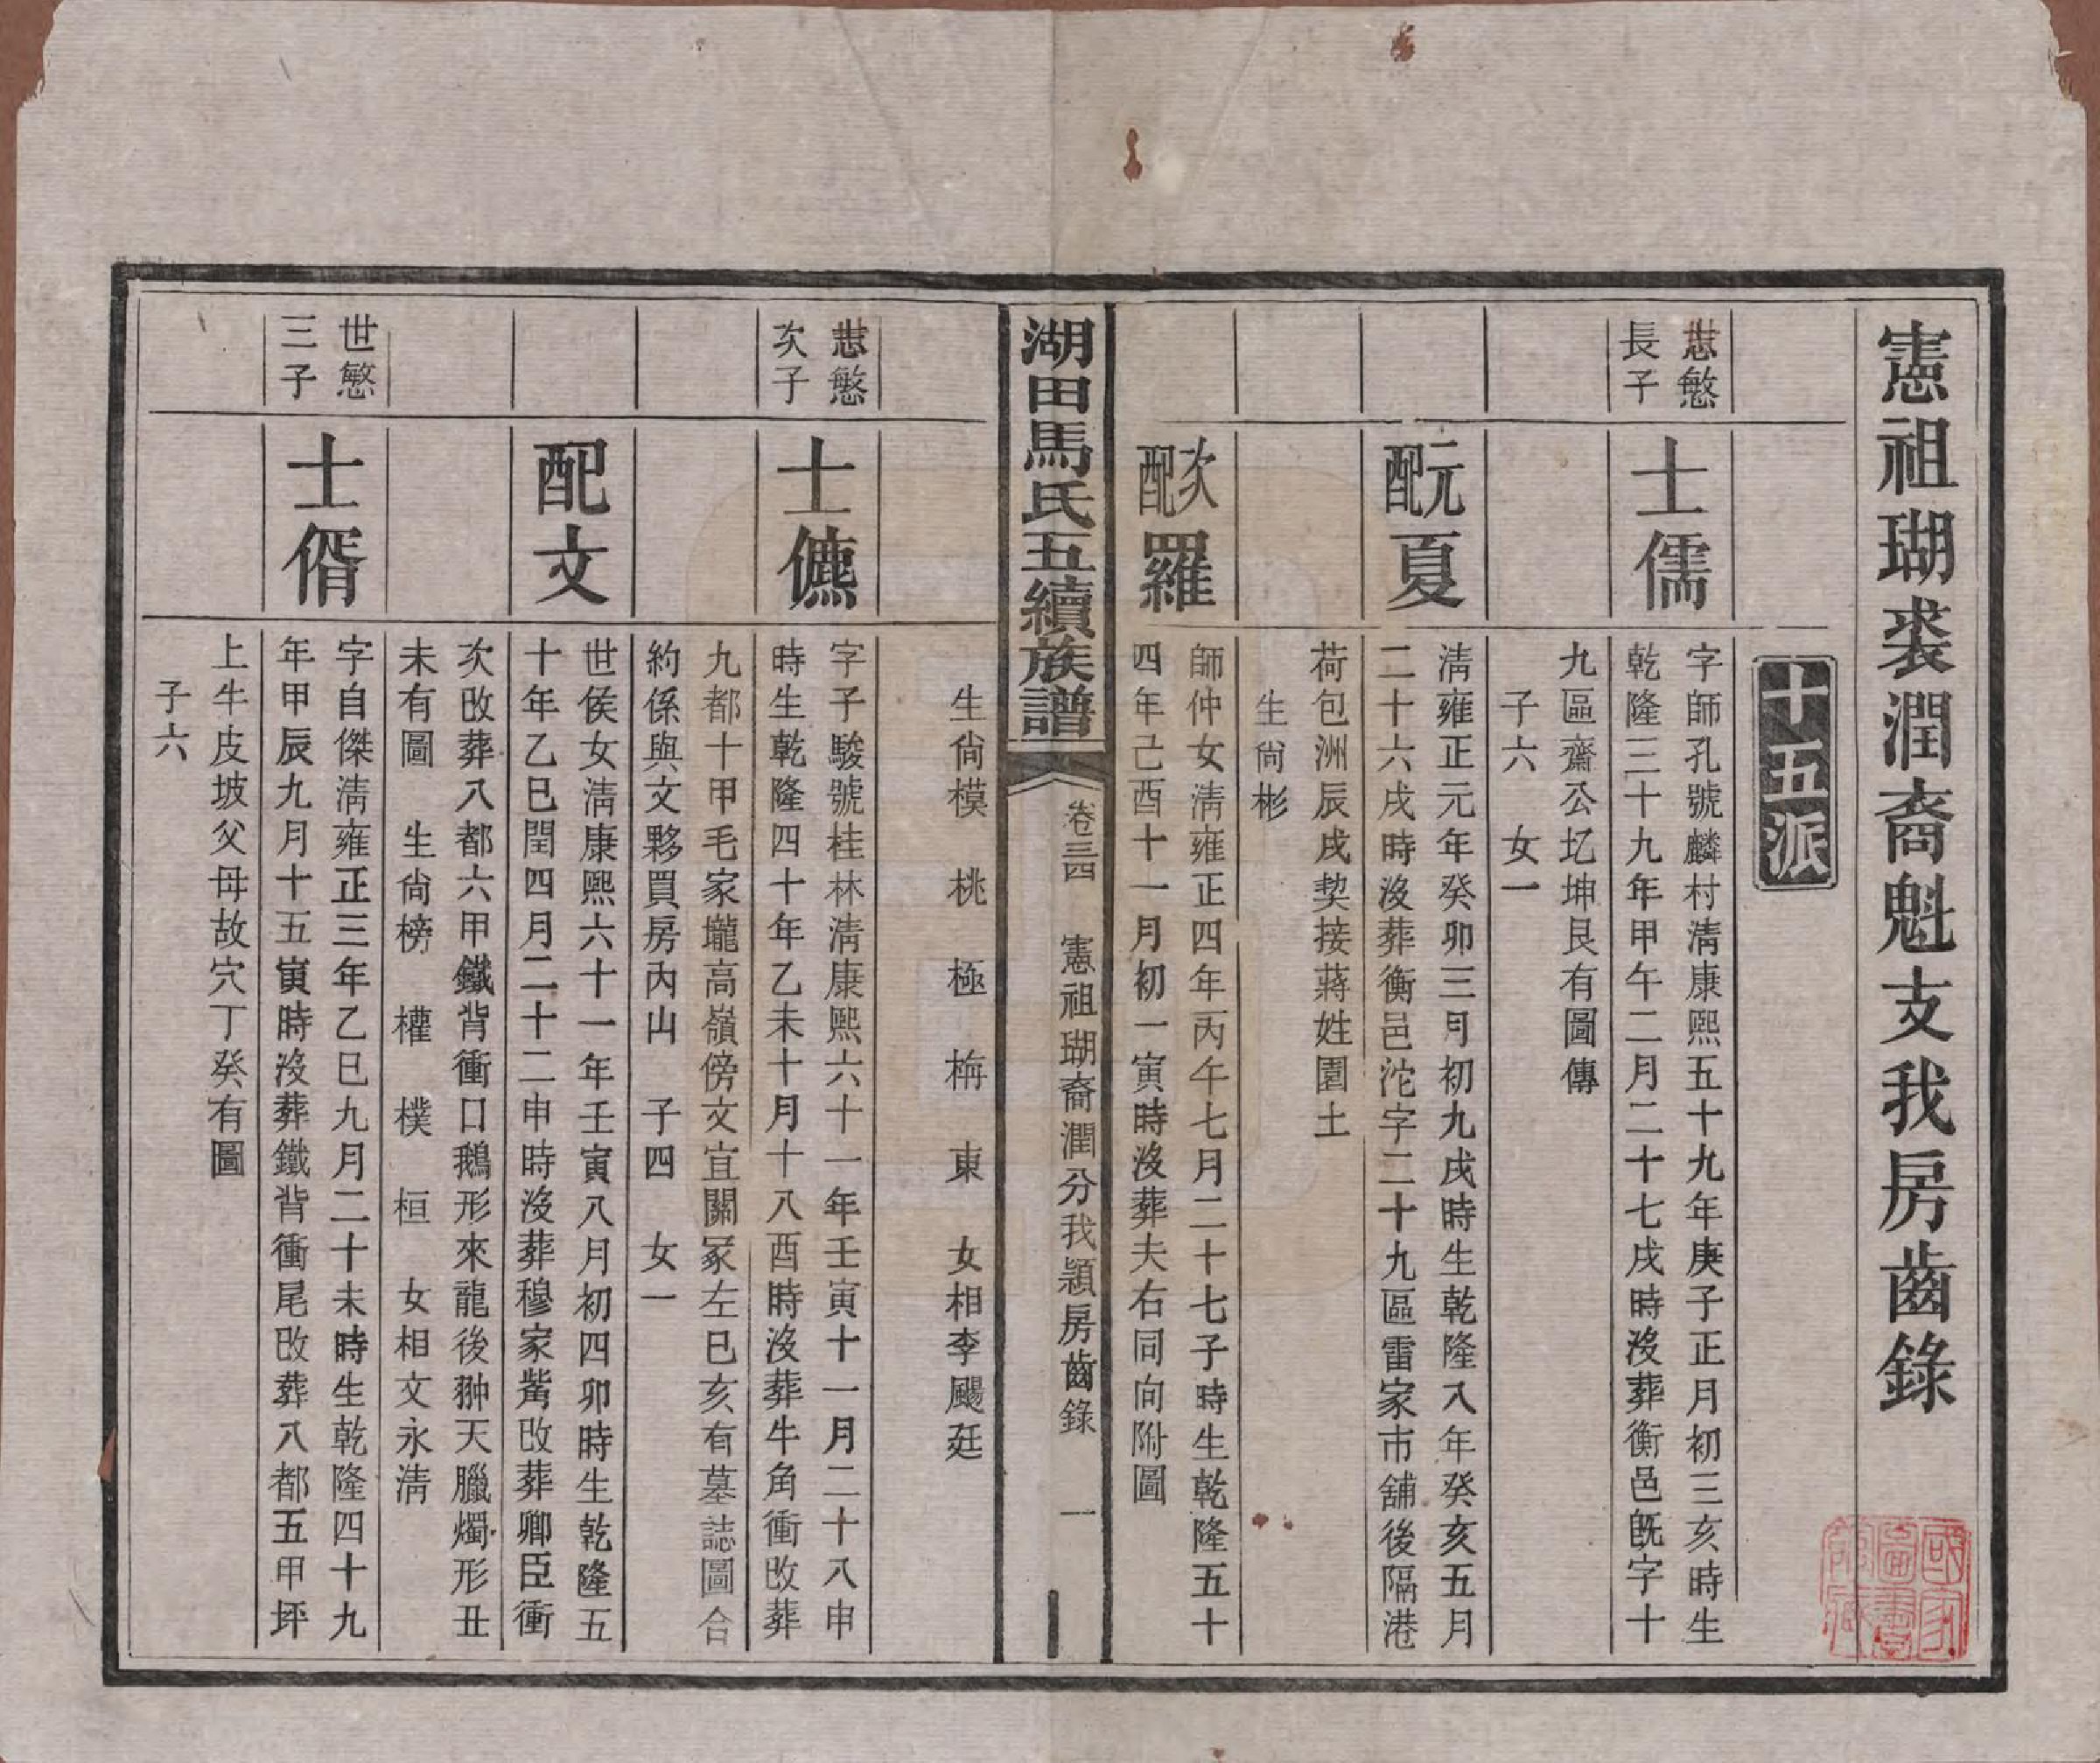 憲祖瑚裘潤裔魁支我房齒錄
十五派
世慜
長子
士儒
字師孔號麟村淸康熙五十九年庚子正月初三亥時生
乾隆三十九年甲午二月二十七戌時沒葬衡邑旣字十
九區齋公圪坤艮有圖傳
子六　女一
元配夏
淸雍正元年癸卯三月初九戌時生乾隆八年癸亥五月
二十六戌時沒葬衡邑沱字二十九區雷家市舖後隔港
荷包洲辰戌契接蔣姓園土
生尙彬
次配羅
師仲女淸雍正四年丙午七月二十七子時生乾隆五十
四年己酉十一月初一寅時沒葬夫右同向附圖
湖田馬氏五續族譜
卷三四　憲祖瑚裔潤分我穎房齒錄　一
生尙模　桃　極　栴　東　女相李颺廷
世慜
次子
士儦
字子駿號桂林淸康熙六十一年壬寅十一月二十八申
時生乾隆四十年乙未十月十八酉時沒葬牛角衝改葬
九都十甲毛家壠高嶺傍文宜關冢左巳亥有墓誌圖合
約係與文夥買房內山　子四　女一
配文
世侯女淸康熙六十一年壬寅八月初四卯時生乾隆五
十年乙巳閏四月二十二申時沒葬穆家嵅改葬卿臣衝
次改葬八都六甲鐵背衝口鵝形來龍後翀天臘燭形丑
未有圖　生尙榜　權　樸　桓　女相文永淸
世慜
三子
士偦
字自傑淸雍正三年乙巳九月二十未時生乾隆四十九
年甲辰九月十五寅時沒葬鐵背衝尾改葬八都五甲坪
上牛皮坡父母故穴丁癸有圖
子六
國家圖書館藏